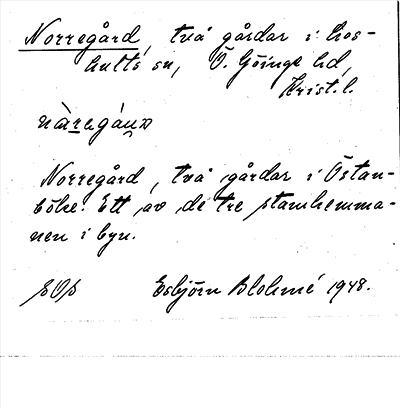 Norregård, två gårdar i Los-
hults sn, Ö. Göinge hd,
Krist. l.
Norregård, två gårdar i Östan-
böke. Ett av de tre stamhemma-
nen i byn.
Esbjörn Blohmé 1948.